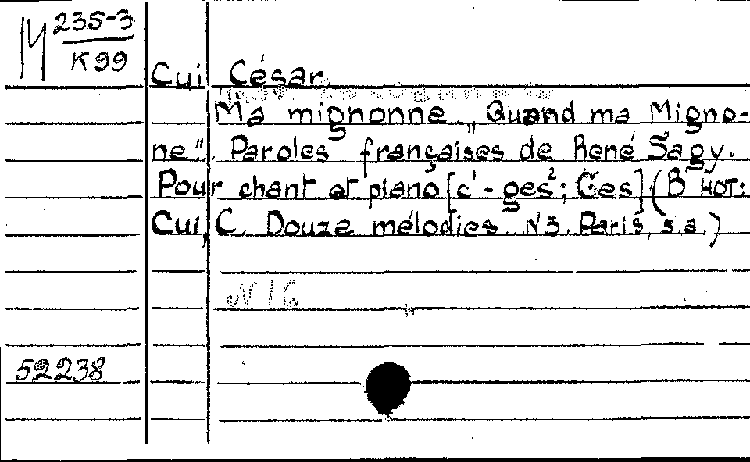 М 235-3
К 99
Cui César
Ma mignonne. „Quand ma Migno-
ne". Paroles françaises de René Sagy.
Pour chant et piano [c¹-ges²; Ges] (В нот:
Cui, C. Douze mélodies. N3. Paris, s.a.)
N 16
52238